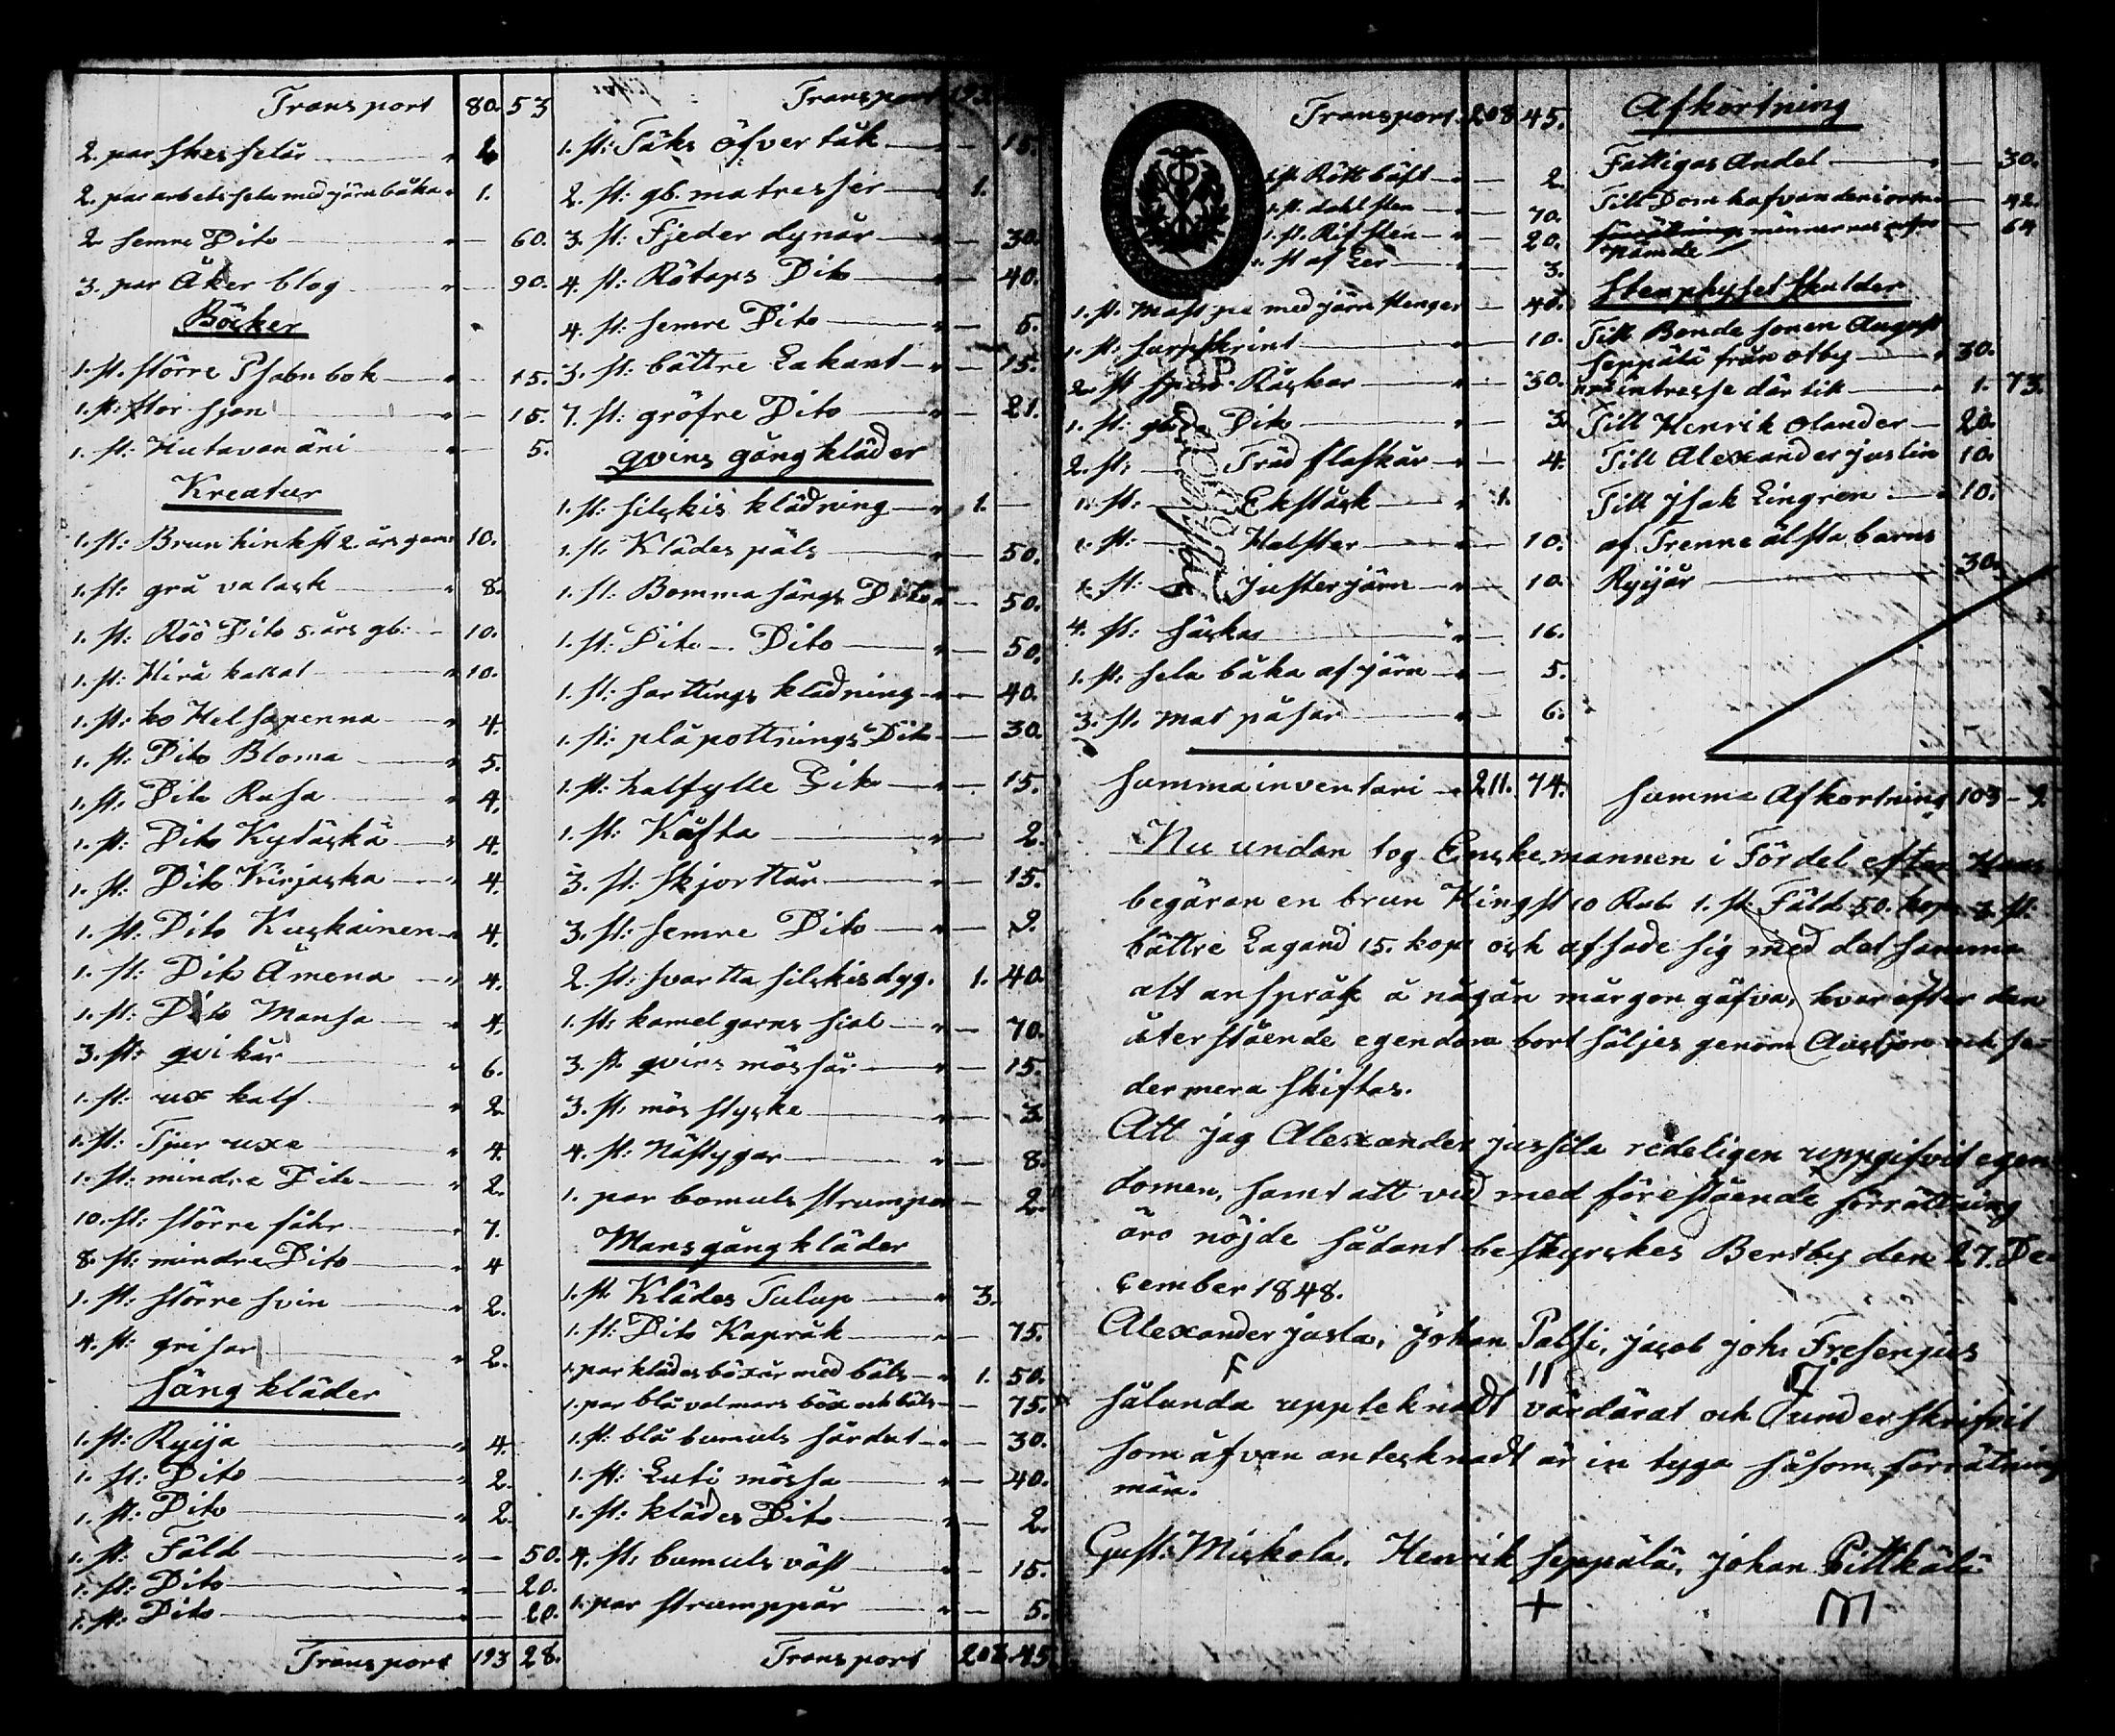 Transport 80. 53
2. par skes selar " 2
2. par arbets sela med järn båka " 1.
2 semre Dito " — 60.
3. par Åker blog " — 90.
Böcker
1. st. större Psalm bok " — 15.
1. st: stor " — 15.
1. st: Hutavanäni " — 5.
Kreatur
1. st: Brun hinkst 2. års gam 10.
1. st: grå valack " 8.
1. st: Röö Dito 5. års gb: 10.
1. st: Hirå " 10.
1. st: ko Helsapenna " 4.
1. st: Dito Bloma " 5.
1. st: Dito Rusa " 4.
1. st: Dito Kytäskä " 4.
1. st: Dito Kirjaska " 4.
1. st: Dito Kuskainen " 4.
1. st: Dito Ämena " 4.
1. st: Dito Mansa " 4.
3. st: qvikår " 6.
1. st: ux kalf " 2
1. st: Tjur uxe " 4
1. st: mindre Dito " 2.
10. st: större fåhr " 7.
8. st: mindre Dito " 4
1. st: större svin " 2.
4. st: grisar " 2.
säng kläder
1. st: Ryija " 4.
1. st: Dito " 2.
1. st: Dito " 2.
1. st: Fäld " — 50.
1. st: Dito " — 20.
1. st: Dito " — 20.
Transport 193 28.
Transport 193
1. st: Täks öfver tåk " — 15.
2. st: gb. matresser " 1.
3. st: Fjeder dynår " — 30.
4. st: Rötaps Dito " — 40.
4. st: semre Dito " — 6.
3. st: bättre Lakant " — 15.
7. st: gröfre Dito " — 21.
qvins gång kläder
1. st: silskis klädning " 1. —
1. st. Klädes päls " — 50.
1. st. Bomma sängs Dito " — 50.
1. st: Dito Dito " — 50.
1. st: sarttings klädning " — 40.
1. st: plåpottnings Dito — 30.
1. st: halfylle Dito " — 15.
1. st: Kåfta " — 2.
3. st: skjorttår " — 15.
3. st: semre Dito " — 9.
2. st: svartta silskisdyg. 1. 40.
1. st: kamelgarns sial " — 70.
3. st qvins mössår " — 15.
3. st. mös stycke " — 3
4. st: Nästygar " — 8.
1. par bomuls strumpor — 2.
Mans gång kläder
1. st. Klädes Tulup " 3.
1. st: Dito Kapråk " — 75.
1. par klädes böxår med bälts " 1. 50.
1. par blå valmars böx och bälts — 75.
1. st: blå bumuls särdut " — 30.
1. st: Luti mössa " — 40.
1. st: klädes Dito " — 2.
4. st. bumuls väst " — 15.
1. par strumppår " — 5.
Transport 208. 45.
Transport. 208 45.
1. st. " — 2.
1. st. " — 70.
1. st. " — 20.
1. st af Ler " — 3.
1. st. med järn stenger — 40.
1. st: " — 10.
2. st " — 30.
1. st: Dito " — 3.
2. st: Träd flaskår " — 4.
1. st: Ekståsk " 1.
1. st: Halster " — 10.
1. st: justerjärn " — 10.
4. st: säckar " — 16.
1. st: sela båka af järn " — 5.
3. st. mat påsar " — 6.
summa inventari 211. 74.
Afkortning
Fattigas Andel " — 30.
Till Domhafvanden — 42.
männernas — 64
nämde
skulder
Till Bonde sonen August
Seppälä från otby " 30.
intresse där till " 1. 73.
Till Henrik Olander 20.
Till Alexander justin 10.
Till jsak Lingren 10.
af Trenne älsta barns
Ryijår 30.
summa Afkortning 103 - 9
Nu undan tog Enskemannen i Fördel efter Hans
begäran en brun Hingst 10 Rub. 1. st. Fäld 50. kop. 3. st:
bättre Lagand 15. kop och afsade sig med det samma
alt anspråk å någån mårgon gåfva, hvarefter den
återstående egendom bort säljes genom Auctjon och se-
dermera skiftas.
Att jag Alexander jussila redeligen uppgifvit egen
domen, samt att vid med förestående förrättning
äro nöjde sådant beskyrkes Bertby den 27. De
cember 1848.
Alexander jusla, Johan Palsi, jacob joh: Fresenjus
F II
sålunda uppteknadt värdärat och underskrifvit
som åfvan antecknadt är in tyga såsom förrätning
män.
Gust: Miskola. Henrik Seppälä, johan Pittkälä
+ M